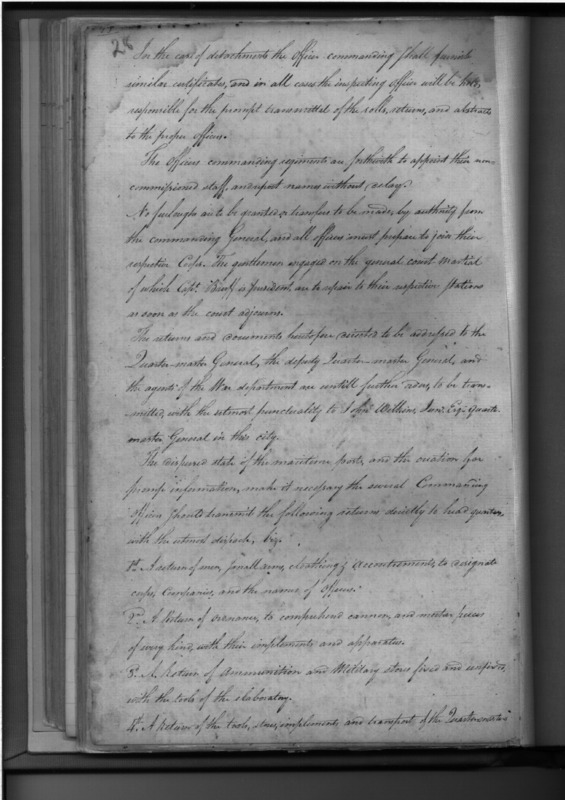 28
In the case of detachments the Officer commanding shall furnish
similar certificates, and in all cases the inspecting officer will be held
responsible for the prompt transmittal of the rolls, returns, and abstracts
to the proper officers.
The Officers commanding regiments are forthwith to appoint their non
commissioned staff, and report names without delay.
No furloughs are to be granted or transfers to be made, by authority from
the commanding General, and all officers must prepare to join their
respective Corps. The gentlemen engaged on the general court martial
of which Capt. Bruff is president are to repair to their respective stations
as soon as the court adjourns.
The returns and documents heretofore directed to be addressed to the
Quarter-master General, the deputy Quarter-master General, and
the agents of the War department are untill further orders, to be trans-
mitted, with the utmost punctuality to John Wilkins, Junr. Esqr. Quarter
master General in this city.
The dispersed state of the maritime posts, and the occasion for
prompt information, make it necessary the several Commanding
officers should transmit the following returns directly to head quarters,
with the utmost dispatch, Viz.
1st. A return of men, small arms, cloathing & accoutrements, to designate
corps, Companies, and the names of Officers.
2d. A Return of ordnance, to comprehend cannon, and mortar pieces
of every kind, with their implements and apparatus.
3d. A Return of Ammunition and Military stores fixed and unfixed,
with the tools of the elaboratory.
4th. A Return of the tools, stores, implements and transport, of the Quartermaster